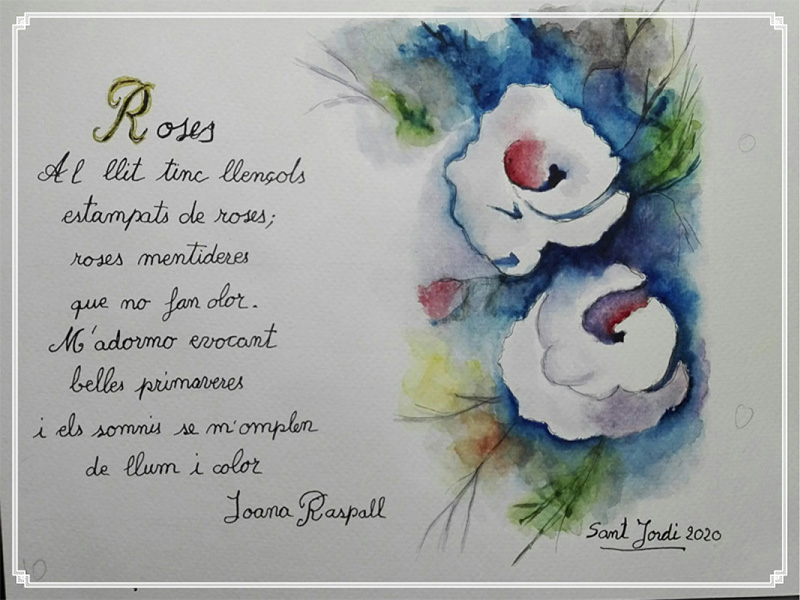 Roses
Al llit tinc llençols
estampats de roses;
roses mentideres
que no fan olor.
M'adormo evocant
belles primaveres
i els somnis se m'omplen
de llum i color
Joana Raspall
Sant Jordi 2020